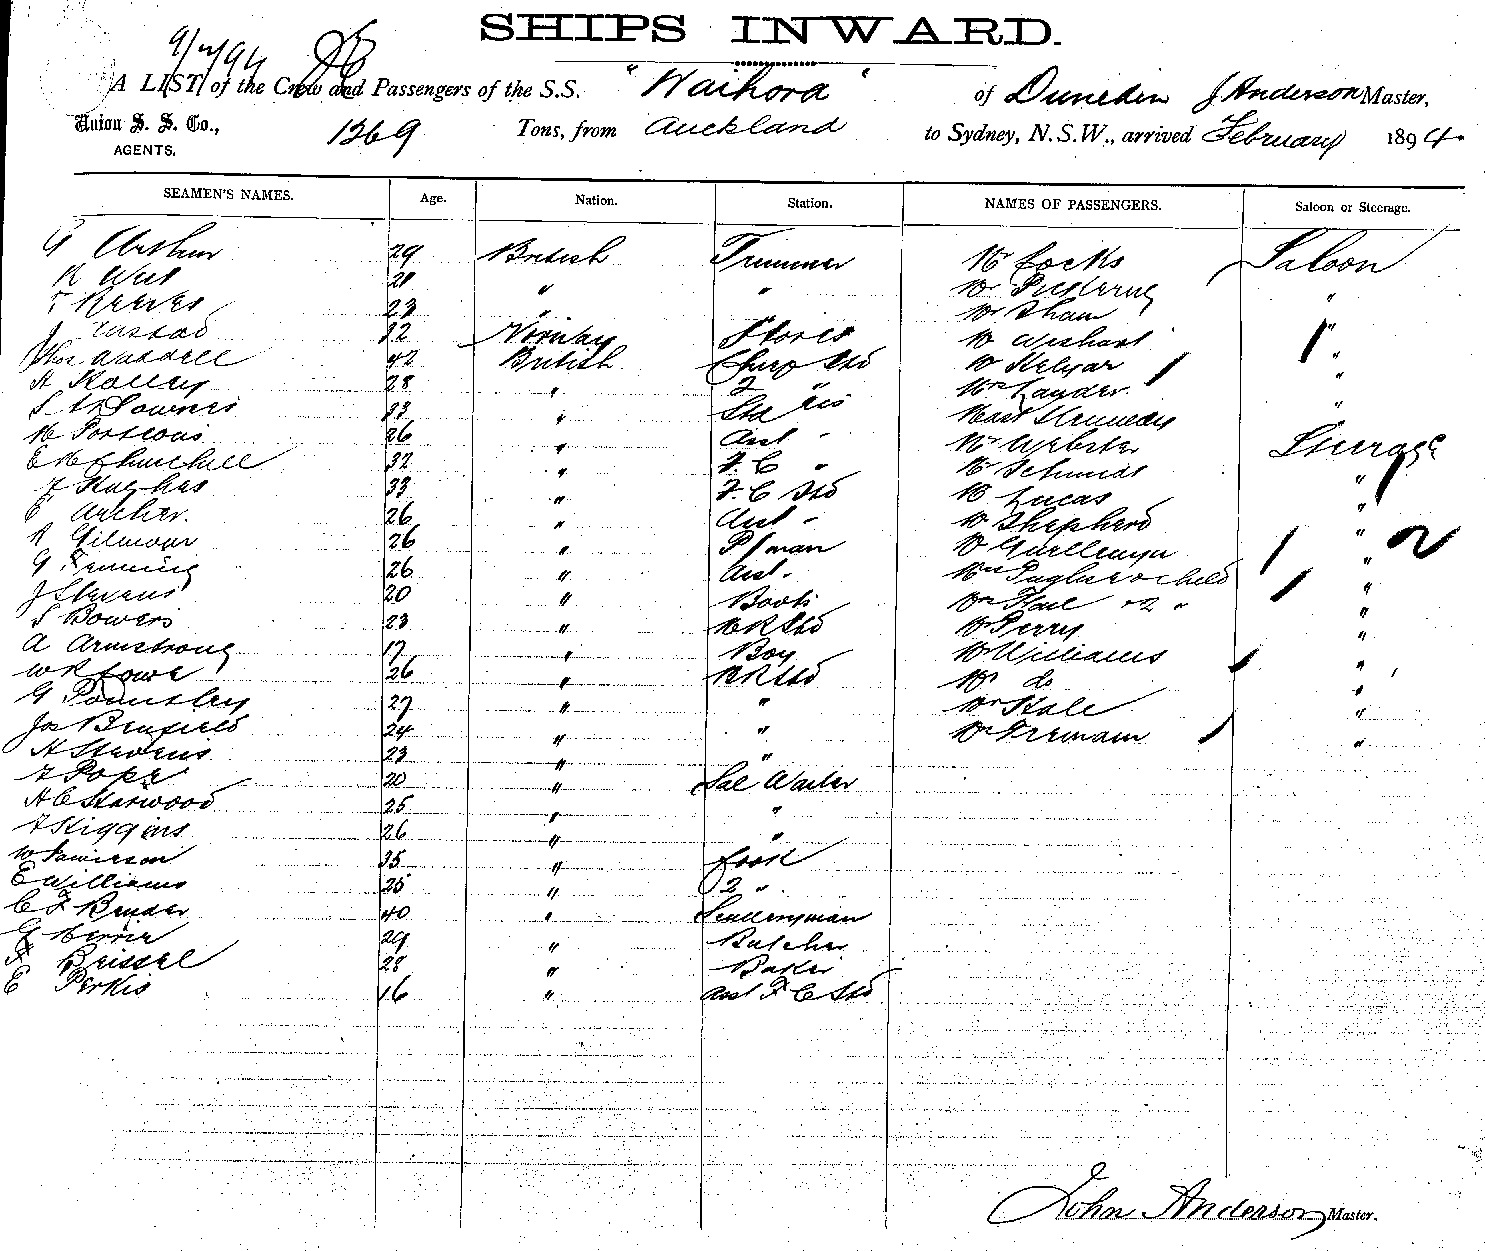 SHIPS INWARD.
9/2/94
A LIST of the Crew and Passengers of the S.S. "Waihora" of Dunedin J Anderson Master,
Union S. S. Co., 1269 Tons, from Auckland to Sydney, N.S.W., arrived February 1894.
AGENTS.
SEAMEN'S NAMES. Age. Nation. Station. NAMES OF PASSENGERS. Saloon or Steerage.
G Arthur 29 British Trimmer Mr Cocks Saloon
West 21 " " Mr Pickering
Reeves 23 " Mr Sham "
J 32 Norway Stores Mr Wishart "
Waddell 42 British Chief Std Mr Kelynar "
A 28 " 2 " Mrs Lauder "
S 33 " Std Mast Kennedy "
M Porteous 26 " Asst " Mr Webster Steerage
E M Churchill 32 " F. C " Mr Schmidt
F Hughes 33 " F. C Std Mr Lucas "
E Archer. 26 " Asst " Mr Shepherd "
R Gilmour 26 " P/man Mr "
G Fenning 26 " Asst. Mrs child "
J Stevens 20 " Boots Mrs 2 " "
S Bowers 23 " B R Std Mr Perry "
A Armstrong 17 " Boy Mr Williams "
W R Lowe 26 " B R Std Mr do "
G Pountley 27 " " Mr Hale "
Jas Benfield 24 " " Mr Fremain "
H Stevens 23 " "
F Pope 20 " Sal Waiter
H C Harwood 25 " "
F Higgins 26 " "
W Jamieson 35 " Cook
E Williams 25 " 2 "
C F Bender 40 " Sculleryman
G 29 " Butcher
F Beissel 28 " Baker
E Perkis 16 " Asst F C Std
John Anderson Master.